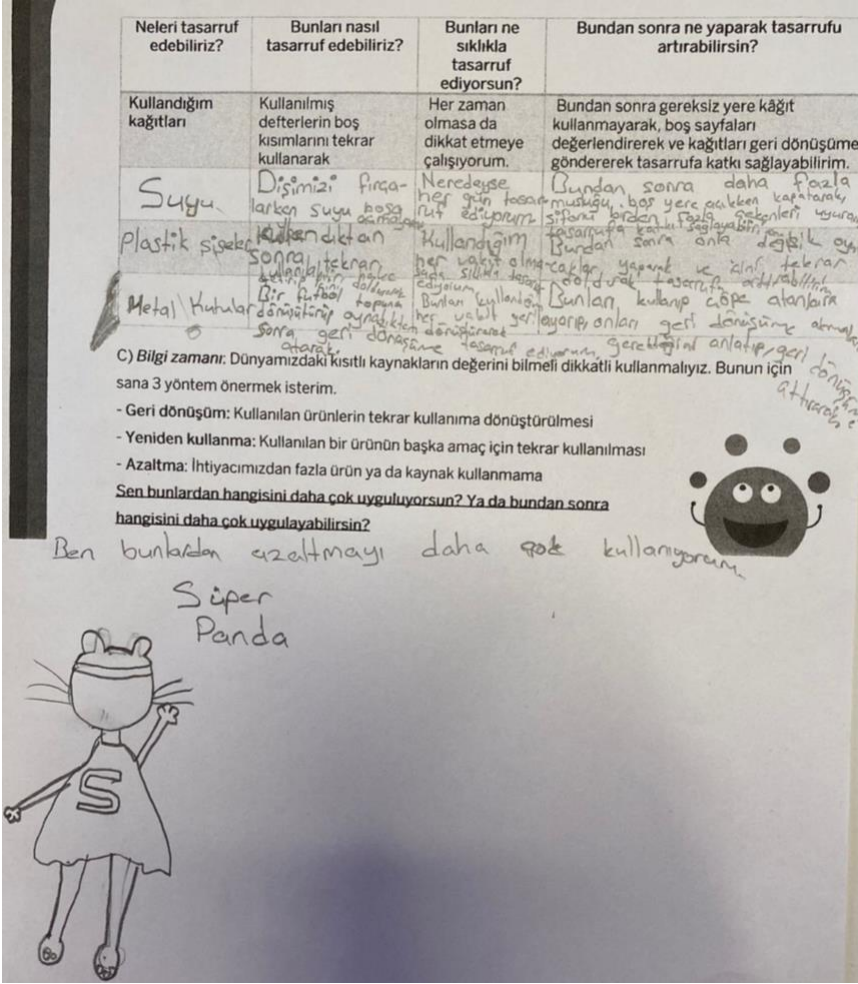 Neleri tasarruf
edebiliriz?
Bunları nasıl
tasarruf edebiliriz?
Bunları ne
sıklıkla
tasarruf
ediyorsun?
Bundan sonra ne yaparak tasarrufu
artırabilirsin?
Kullandığım
kağıtları
Kullanılmış
defterlerin boş
kısımlarını tekrar
kullanarak
Her zaman
olmasa da
dikkat etmeye
çalışıyorum.
Bundan sonra gereksiz yere kâğıt
kullanmayarak, boş sayfaları
değerlendirerek ve kağıtları geri dönüşüme
göndererek tasarrufa katkı sağlayabilirim.
Suyu
Dişimizi fırça-
larken suyu boşa
Neredeyse
her gün tasar-
ruf ediyorum
Bundan sonra daha fazla
musluğu, boş yere açıkken kapatarak,
tasarrufa katkı sağlayabilirim
Plastik şişeler
Kullandıktan
sonra tekrar
Kullandığım
her vakit olma-
sada sıklıkla tasarruf
ediyorum
Bundan sonra onla değişik
yaparak ve içini tekrar
doldurarak tasarrufu arttırabilirim
Metal Kutular
Bir futbol topuna
dönüştürüp oynadıktan
sonra geri dönüşüme
atarak.
Bunları kullandığım
her vakit geri
dönüştürerek
tasarruf ediyorum
Bunları kullanıp çöpe atanlara
onları geri dönüşüme
gerektiğini anlatıp, geri
dönüşüm
attırarak
C) Bilgi zamanı: Dünyamızdaki kısıtlı kaynakların değerini bilmeli dikkatli kullanmalıyız. Bunun için
sana 3 yöntem önermek isterim.
- Geri dönüşüm: Kullanılan ürünlerin tekrar kullanıma dönüştürülmesi
- Yeniden kullanma: Kullanılan bir ürünün başka amaç için tekrar kullanılması
- Azaltma: İhtiyacımızdan fazla ürün ya da kaynak kullanmama
Sen bunlardan hangisini daha çok uyguluyorsun? Ya da bundan sonra
hangisini daha çok uygulayabilirsin?
Ben bunlardan azaltmayı daha çok kullanıyorum.
Süper
Panda
S